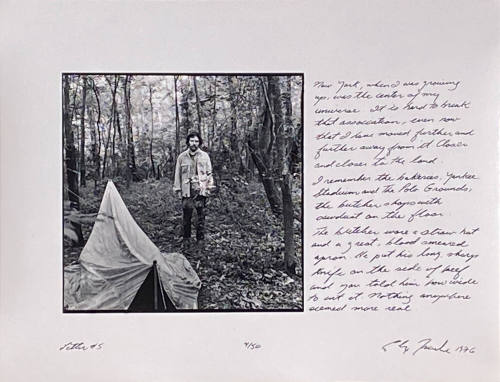 New York, when I was growing
up, was the center of my
universe. It is hard to break
that association, even now
that I have moved further and
further away from it closer
and closer to the land.
I remember the bakeries, Yankee
Stadium and the Polo Grounds,
the butcher shops with
sawdust on the floor.
The butcher wore a straw hat
and a great, blood smeared
apron. He put his long, sharp
knife on the side of beef
and you told him how wide
to cut it. Nothing anywhere
seemed more real
#5
/50
1976